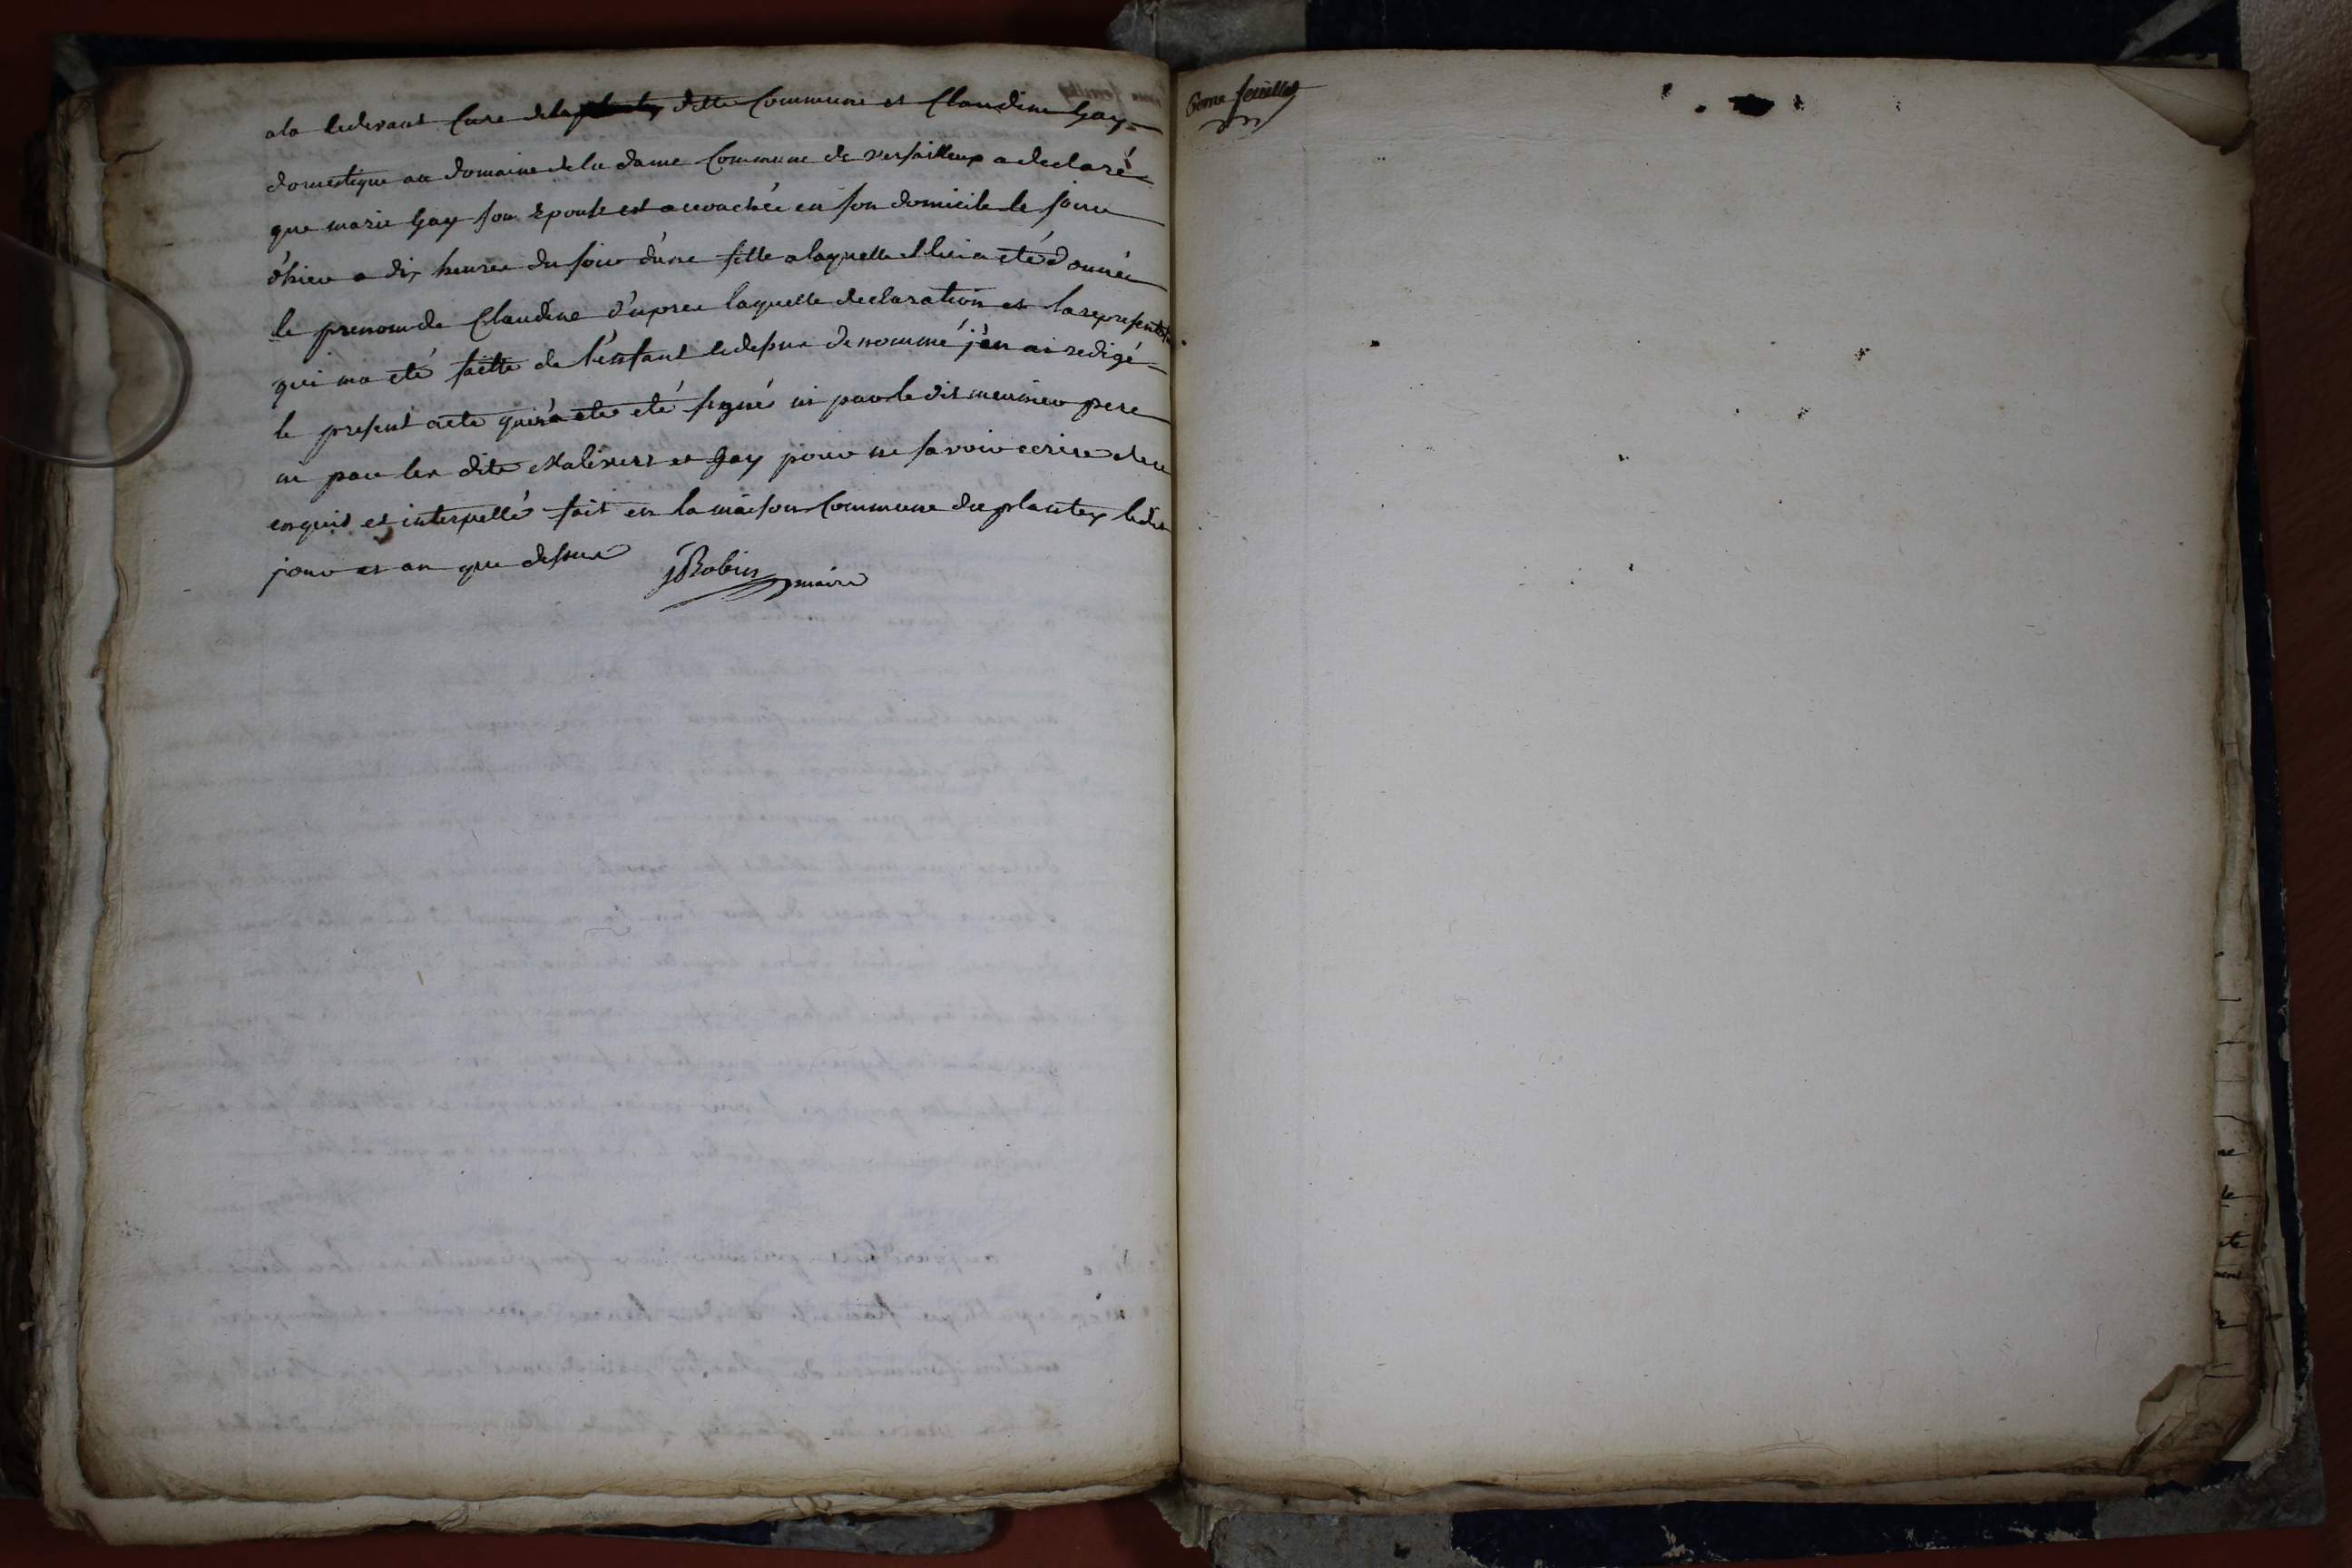 a la cidevant Cure de la ditte Commune et Claudine Gay
domestique au domaine de la dame Commune de versailleux a declaré
que marie Gay son Epouse est accouchée en son domicile le jour
d'hier a dix heures du soir d'une fille a laquelle il lui a eté donnée
le prenom de Claudine d'apres laquelle declaration et la representation
qui ma eté faitte de l'enfant cidessus denommé j'en ai redigé
le present acte qui n'a eté signé ni par le dit meunier pere
ni par les dits et Gay pour ne savoir ecrire de ce
enquis et interpellé fait en la maison Commune du plantey ledit
jour et an que dessus
JRobin maire
6eme feuillet